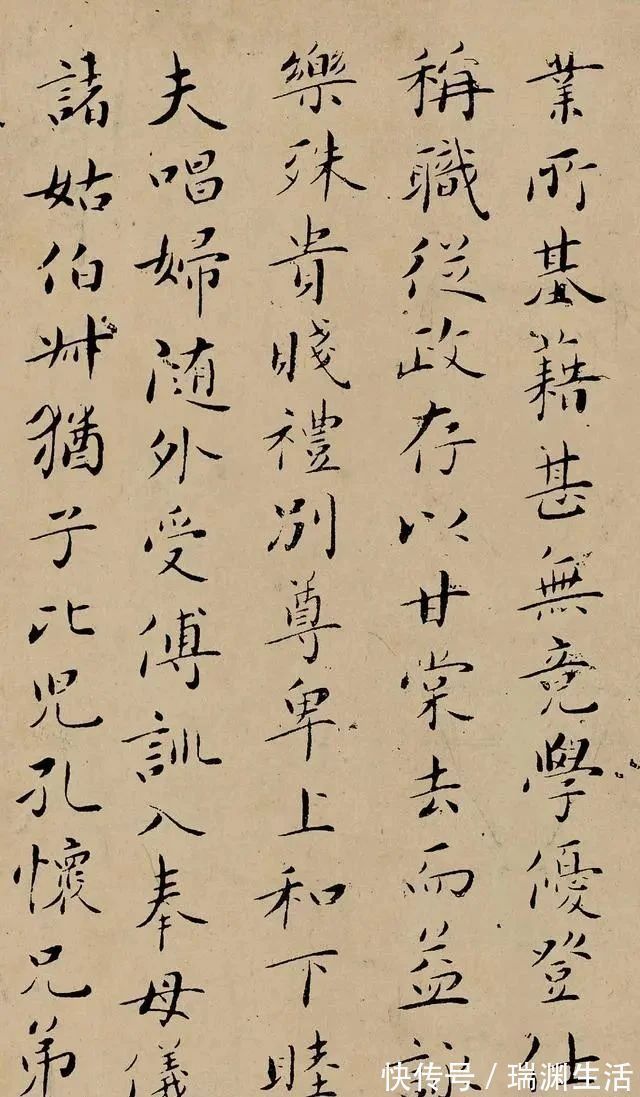 業所基籍甚無竟學優登仕
稱職從政存以甘棠去而益詠
樂殊貴賤禮別尊卑上和下睦
夫唱婦随外受傅訓入奉母儀
諸姑伯叔猶子比児孔懷兄弟
快传号/瑞渊生活